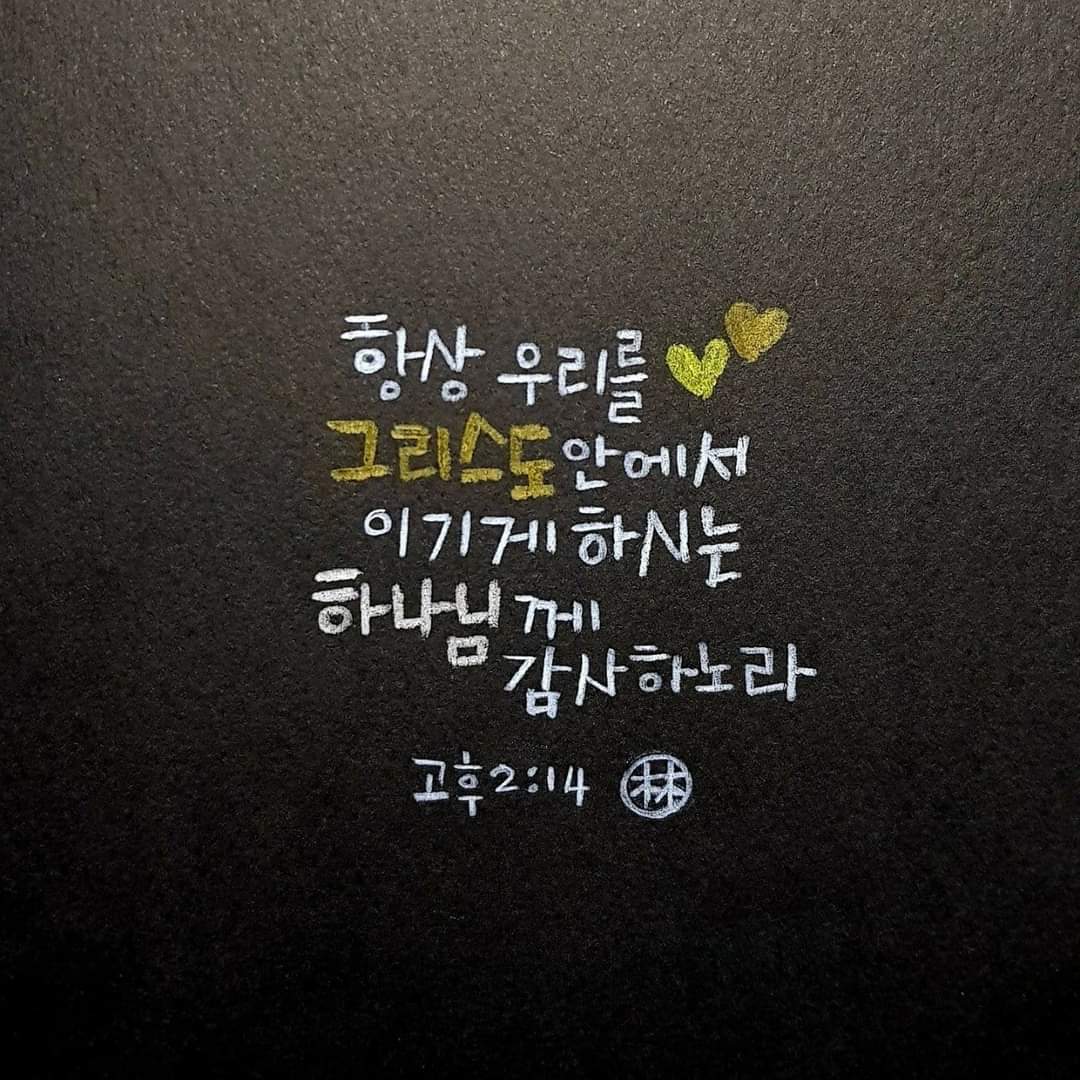 항상 우리를
그리스도 안에서
이기게 하시는
하나님께
감사하노라
고후 2:14 林